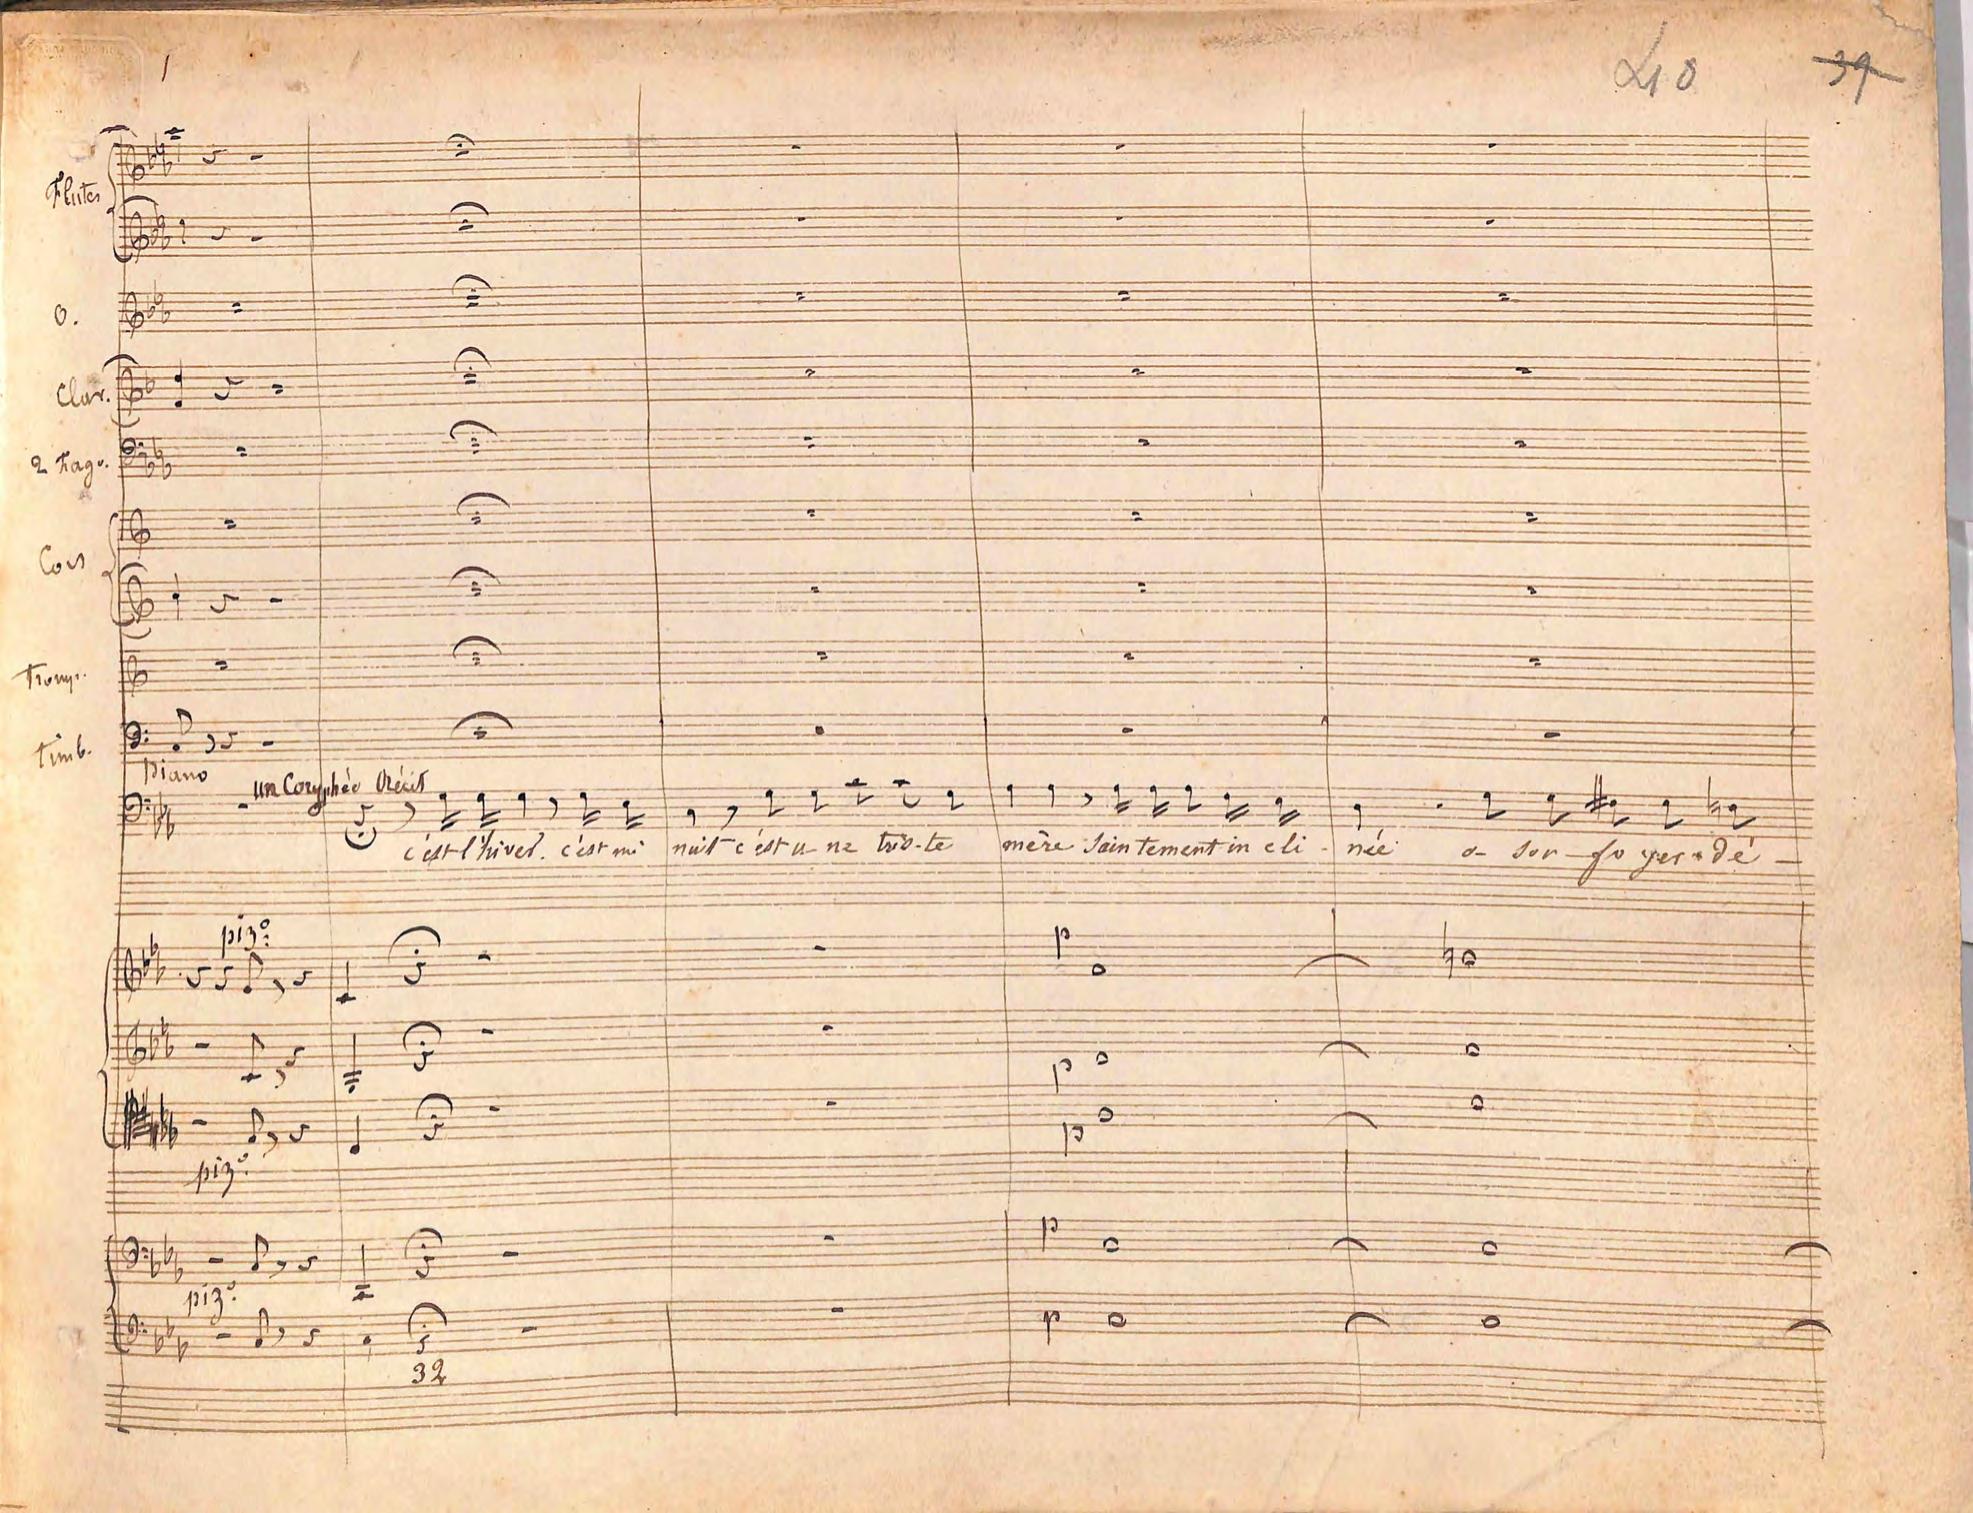 40 39
Flûtes
O.
Clar.
2 Fago.
Cors
Tromp.
Timb.
Piano
un Coryphée Récit
c'est l'hiver. c'est mi nuit c'est u- ne tris-te mère Saintement in cli - née a son fo yer dé -
pizº:
p
p
p
pizº.
p
pizº.
p
32